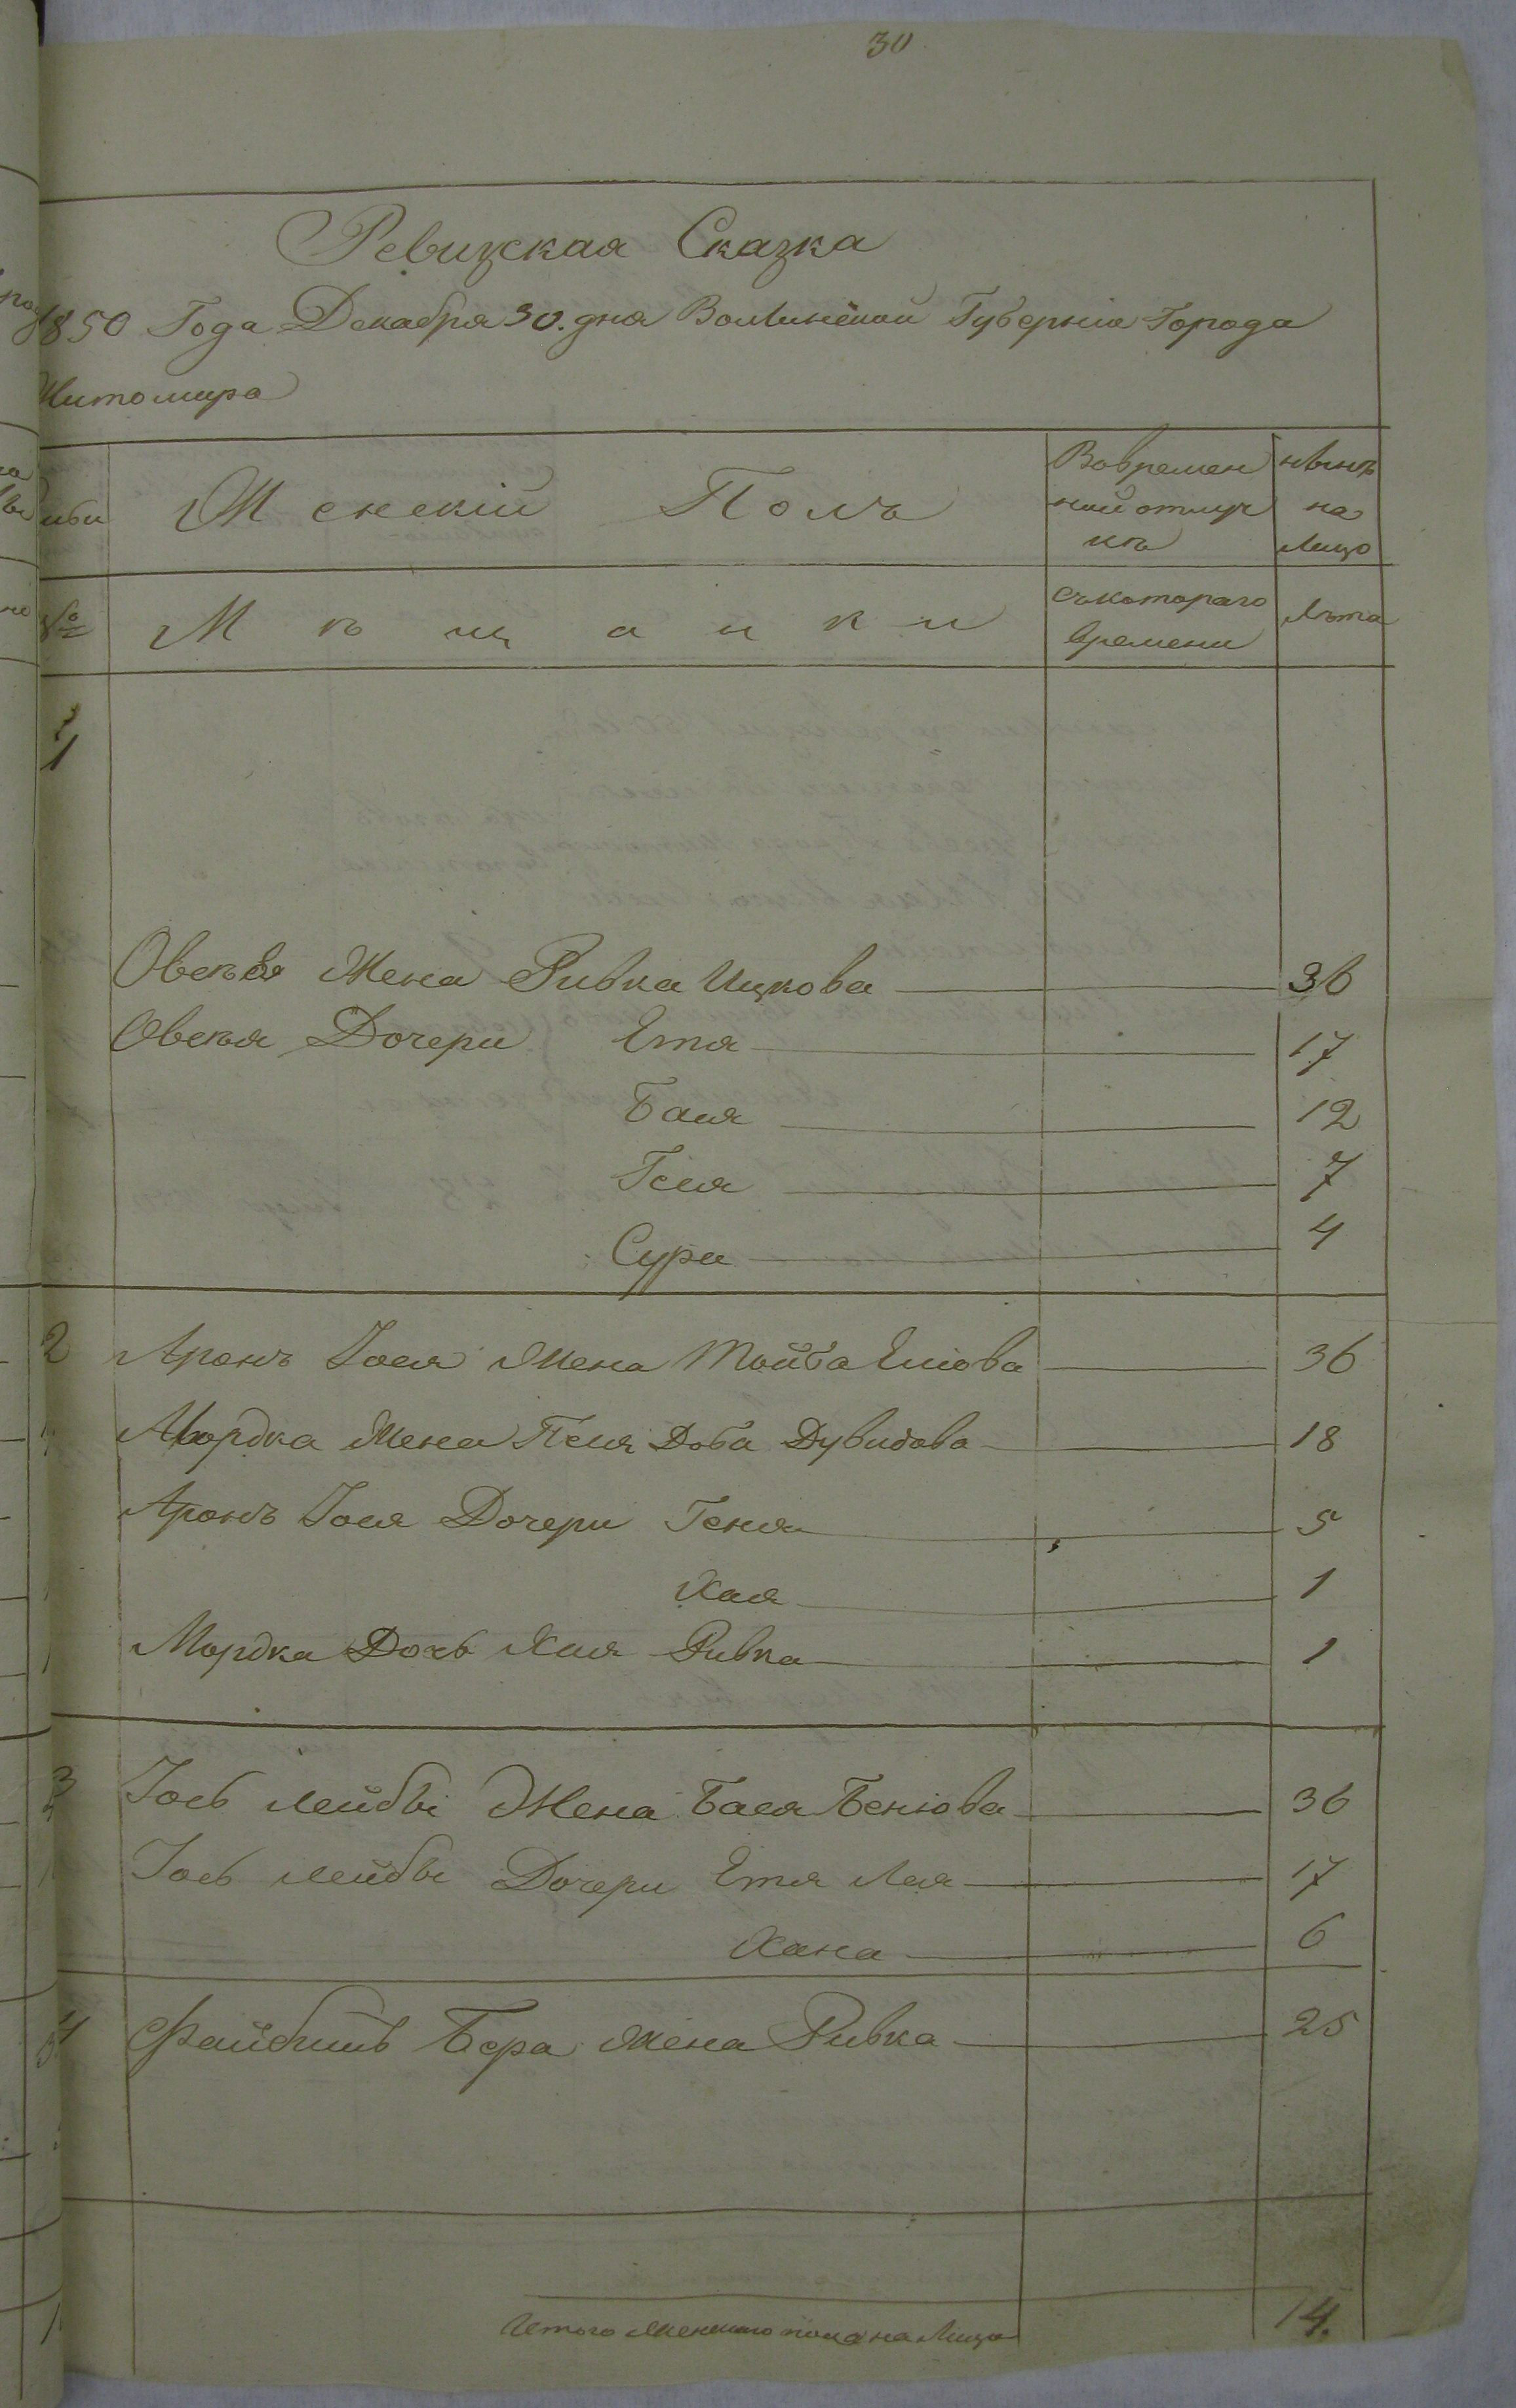 30
Ревизская Сказка
1850 Года Декабря 30. дня Волынской Губернiи Города
Житомира
Женскiй Полъ
Вовремен
ной отлуч
кѣ
нынѣ
на
Лицо
№
Мѣщанки
Съкотораго
времени
Лѣта
1
Овсѣя Жена Ривка Ицкова 36
Овсѣя Дочери Етя 17
Бася 12
Геля 7
Сура 4
2 Аронъ Iося Жена Тойба Еліова 36
Мордка Жена Песя Доба Дувидова 18
Аронъ Iося Дочери Геня 5
Хая 1
Мордка Дочь Хая Ривка 1
3 Iось Лейбы Жена Бася Бенюва 36
Iось Лейбы Дочери Етя Лея 17
Хана 6
4 Файбишъ Бера Жена Ривка 25
Итого женскаго пола на Лицо 14.